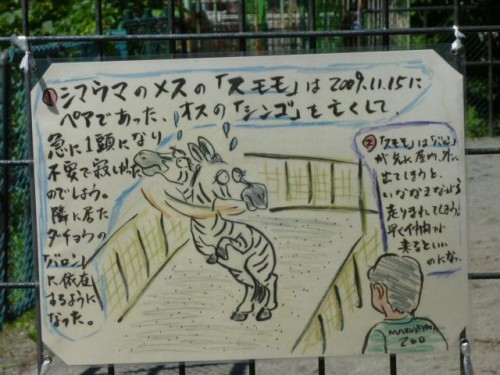 ①シマウマのメスの「スモモ」は2009.11.15に
ペアであった、オスの「シンゴ」を亡くして、
急に1頭になり
不安で寂しかった
のでしょう。
隣に居た
ダチョウの
「バロン」
に依存
するように
なった。
②「スモモ」は「バロン」
が気に成り、外に
出てしまうと、
いななきながら
走りまわってしまう。
早く仲間が
来るといい
のになぁ
MARUYAMA
ZOO